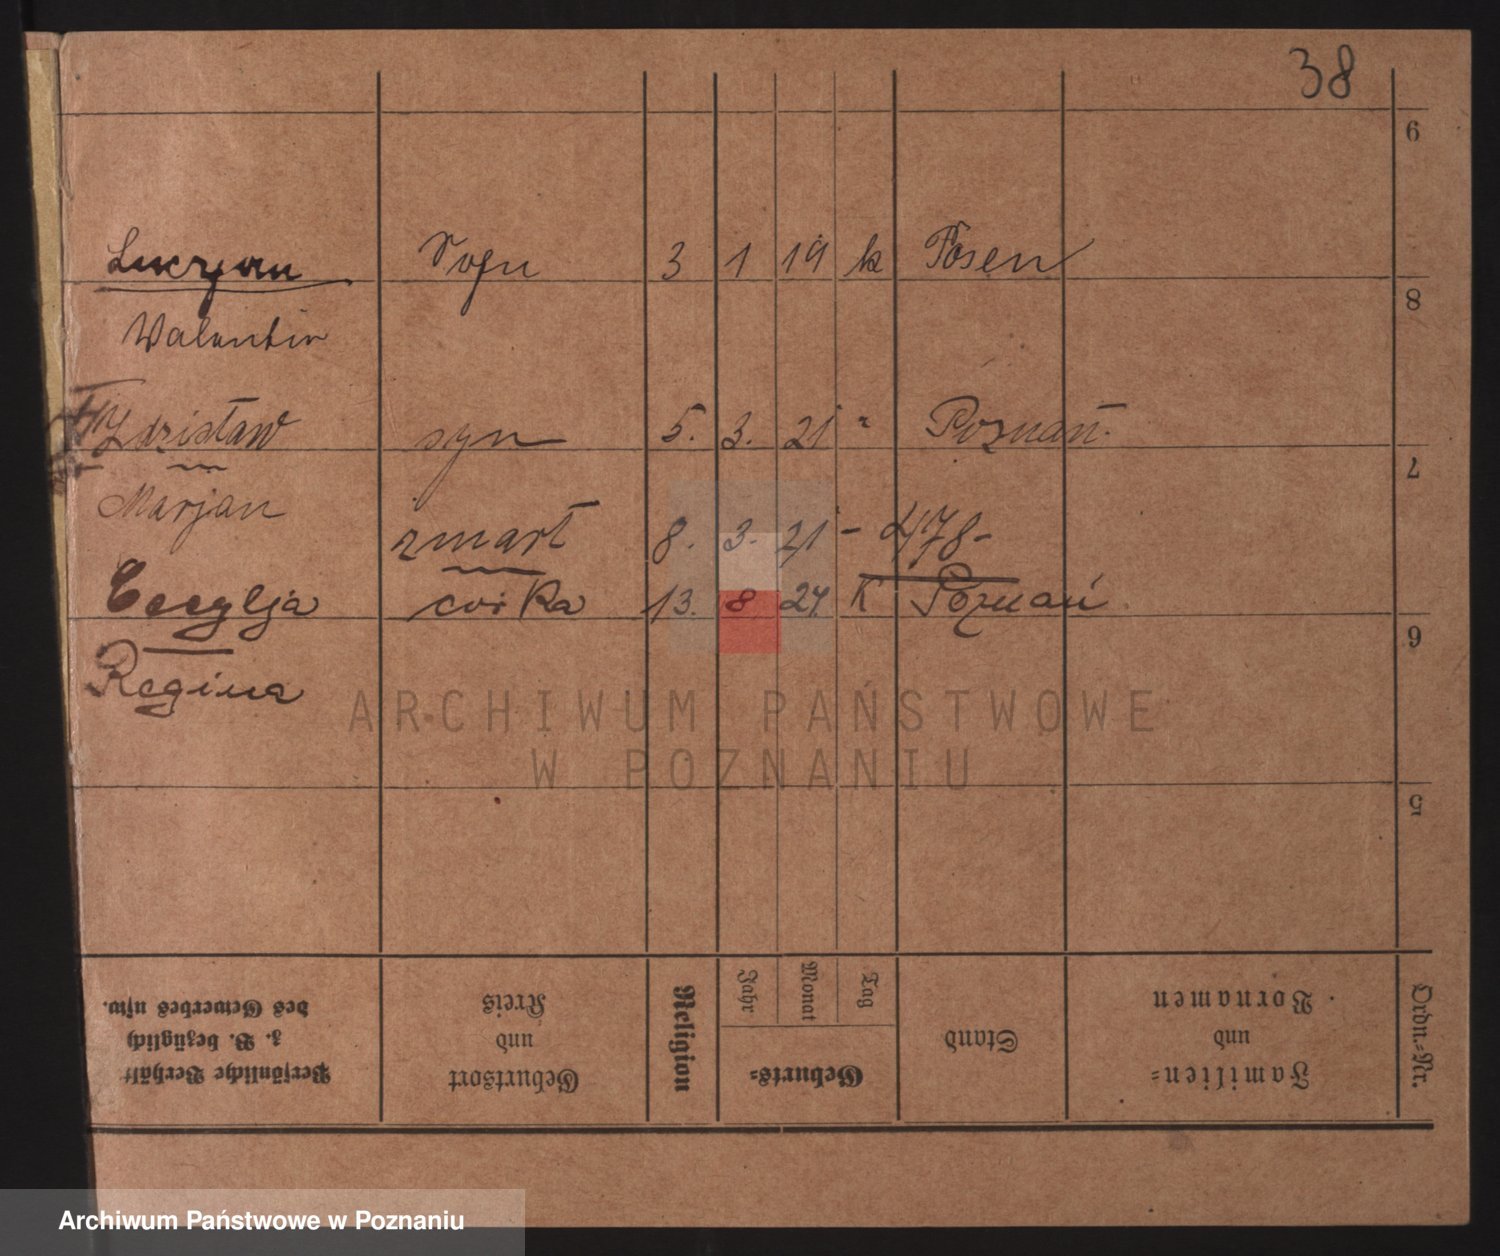 38
9
Lucyan Sohn 3 1 19 k Posen
8
Valentin
Zdzisław syn 5. 3. 21 " Poznań.
7
Marjan
zmarł 8. 3. 21 - 478-
Cecylja córka 13. 8 24 K Poznań
6
Regina
ARCHIWUM PAŃSTWOWE
W POZNANIU
5
Ordn.-Nr.
Familien-
und
Vornamen
Stand
Geburts-
Tag
Monat
Jahr
Religion
Geburtsort
und
Kreis
Persönliche Verhält
z. B. bezüglich
des Gewerbes usw.
Archiwum Państwowe w Poznaniu